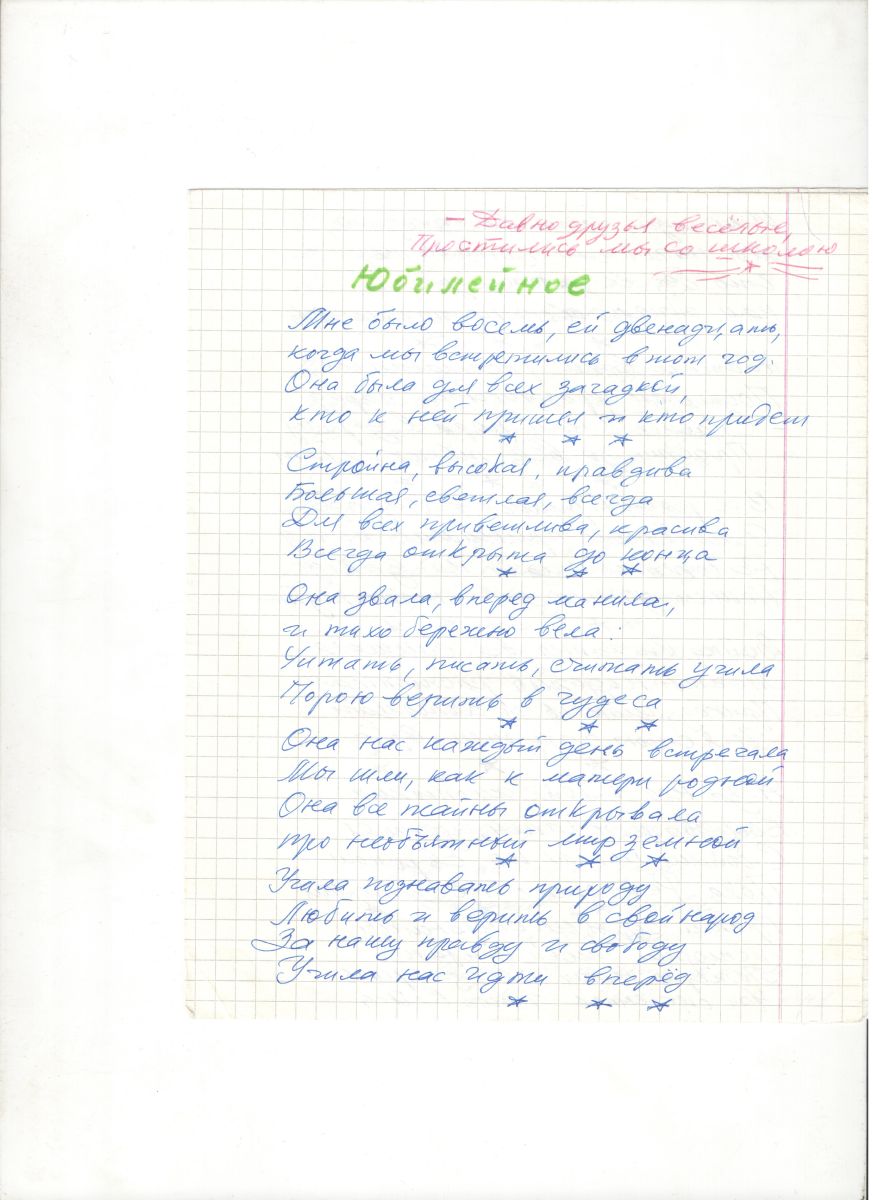 – Давно друзья весёлые,
Простились мы со школою
Юбилейное
Мне было восемь, ей двенадцать,
когда мы встретились в тот год.
Она была для всех загадкой,
кто к ней пришел и кто придет
Стройна, высокая, правдива
Большая, светлая, всегда
Для всех приветлива, красива
Всегда открыта до конца
Она звала, вперед манила,
и тихо бережно вела:
Читать, писать, считать учила
Порою верить в чудеса
Она нас каждый день встречала
Мы шли, как к матери родной
Она все тайны открывала
про необъятный мир земной
Учила познавать природу
Любить и верить в свой народ
За нашу правду и свободу
Учила нас идти вперёд